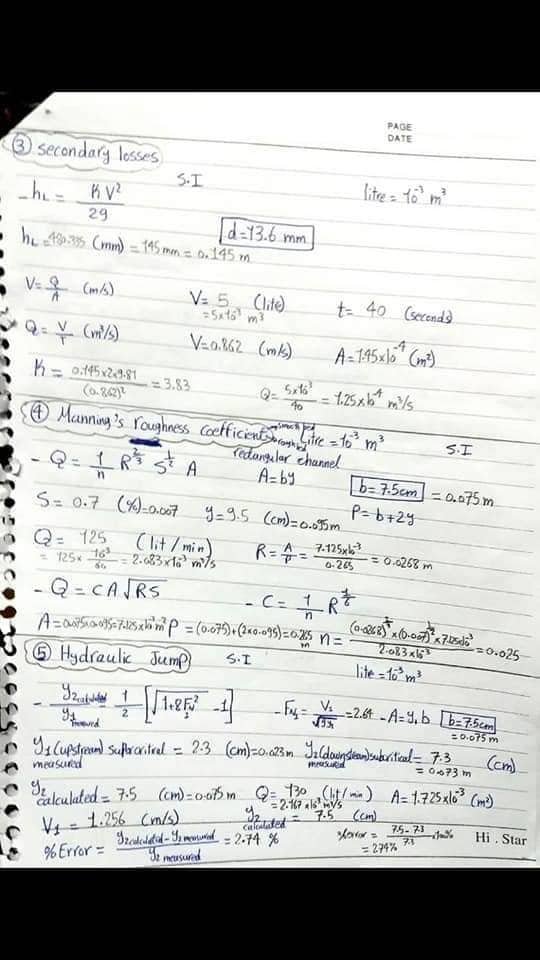 PAGE
DATE
③ secondary losses
S.I
litre = 10⁻³ m³
- hL = KV²/2g
d=13.6 mm
hL = (mm) = 145 mm = 0.145 m
V = Q/A (m/s)
V = 5 (lite) = 5x10⁻³ m³
t = 40 (seconds)
Q = V/T (m³/s)
V = 0.862 (m/s)
A = 1.45x10⁻⁴ (m²)
K = 0.145x2x9.81/(0.862)² = 3.83
Q = 5x10⁻³/40 = 1.25x10⁻⁴ m³/s
④ Manning's roughness coefficient
litre = 10⁻³ m³
S.I
- Q = 1/n R^2/3 S^1/2 A
rectangular channel
A = by
b = 7.5cm = 0.075 m
S = 0.7 (%) = 0.007
y = 9.5 (cm) = 0.095m
P = b+2y
Q = 125 (lit/min)
= 125x 10⁻³/60 = 2.083x10⁻³ m³/s
R = A/P = 7.125x10⁻³/0.265 = 0.0268 m
- Q = CA√RS
- C = 1/n R^1/6
A = 0.075x0.095 = 7.125x10⁻³ m² P = (0.075)+(2x0.095) = 0.265 m n = (0.0268)^2/3 x(0.007)^1/2 x7.125x10⁻³/2.083x10⁻³ = 0.025
⑤ Hydraulic Jump
S.I
lite = 10⁻³ m³
- y2 calculated/y1 measured 1/2 [√1+8F²-1]
- = V1/√gy1 = 2.64
- A = y1 b
b = 7.5cm = 0.075 m
y1 (upstream) = 2.3 (cm) = 0.023m y2 (downstream) subcritical = 7.3 (cm)
measured measured = 0.073 m
y2 calculated = 7.5 (cm) = 0.075 m Q = 130 (lit/min) A = 1.725x10⁻³ (m²)
= 2.167x10⁻³ m³/s
V1 = 1.256 (m/s) y2 calculated = 7.5 (cm)
%Error = y2 calculated - y2 measured/y2 measured = 2.74 %
%error = 7.5-7.3/7.3 x100% = 2.74%
Hi . Star